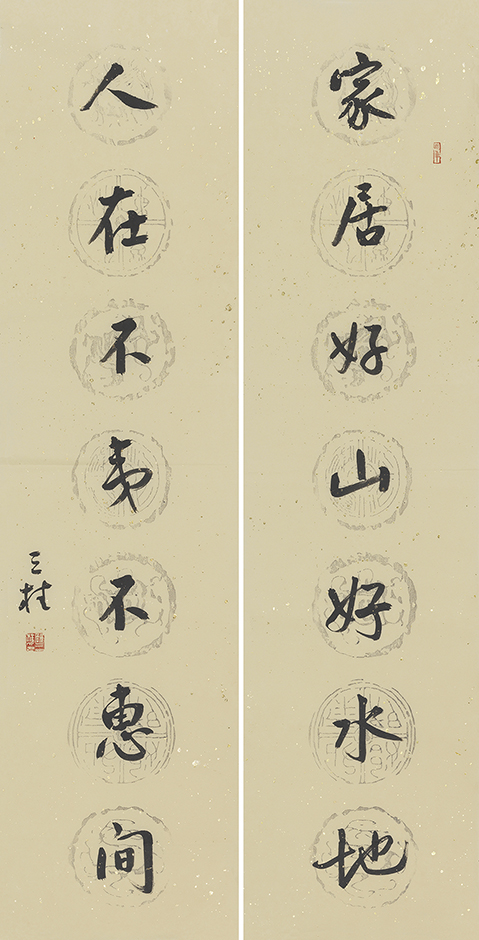 家居好山好水地
人在不夷不惠间
三柱